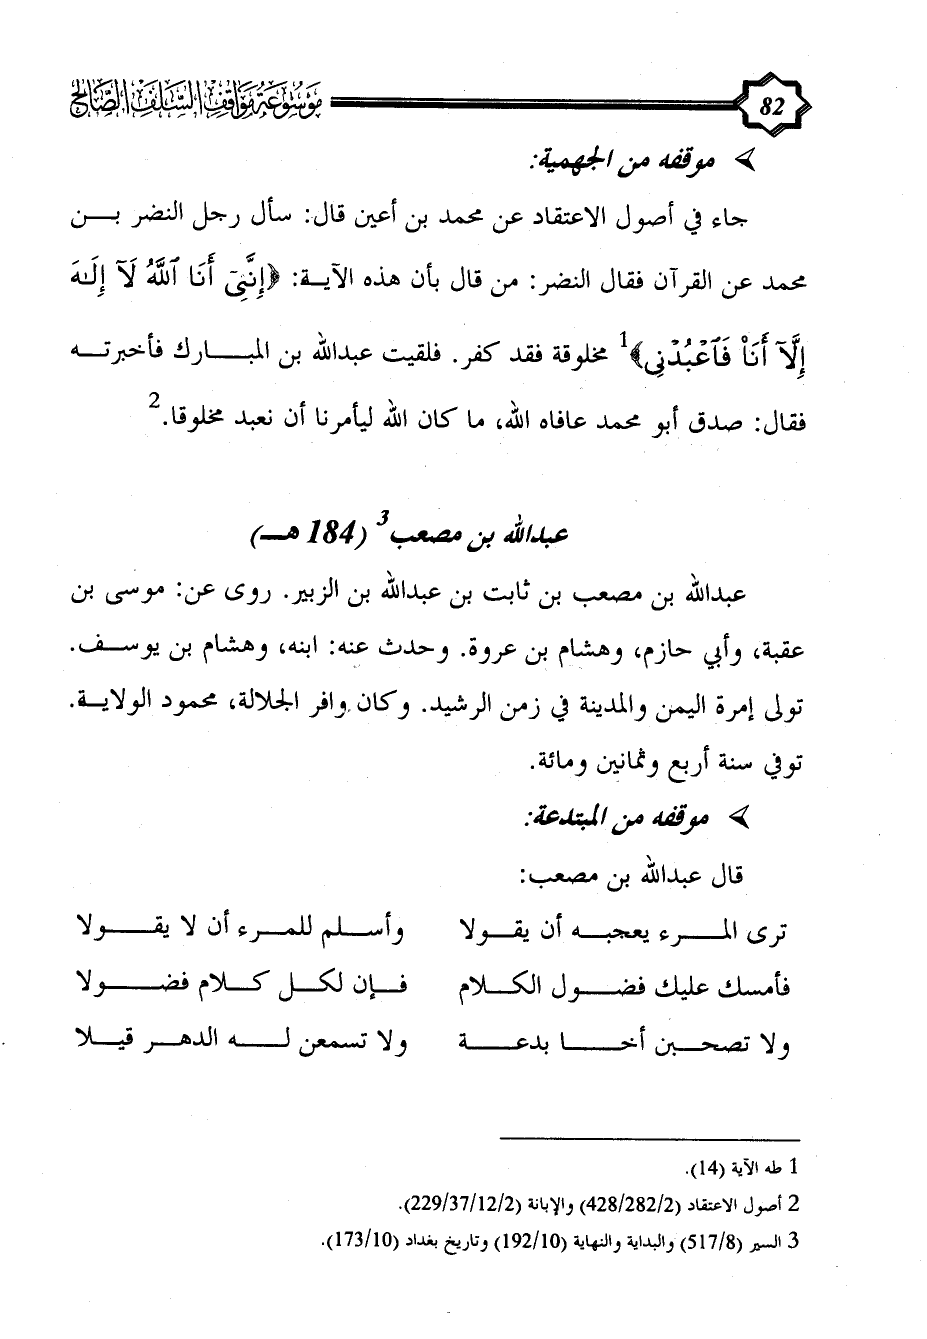 82
موسوعة مواقف السلف الصالح
موقفه من الجهمية:
جاء في أصول الاعتقاد عن محمد بن أعين قال: سأل رجل النضر بـــن
محمد عن القرآن فقال النضر: من قال بأن هذه الآيـة: ﴿إِنَّنِيٓ أَنَا ٱللَّهُ لَآ إِلَـٰهَ
إِلَّآ أَنَا۠ فَٱعْبُدْنِي﴾1 مخلوقة فقد كفر. فلقيت عبدالله بن المبـــارك فأخبرتـــه
فقال: صدق أبو محمد عافاه الله، ما كان الله ليأمرنا أن نعبد مخلوقا.2
عبدالله بن مصعب3 (184 هـــ)
عبدالله بن مصعب بن ثابت بن عبدالله بن الزبير. روى عن: موسى بن
عقبة، وأبي حازم، وهشام بن عروة. وحدث عنه: ابنه، وهشام بن يوســـف.
تولى إمرة اليمن والمدينة في زمن الرشيد. وكان وافر الجلالة، محمود الولايـــة.
توفي سنة أربع وثمانين ومائة.
موقفه من المبتدعة:
قال عبدالله بن مصعب:
ترى المـــرء يعجبـــه أن يقـــولا وأســـلم للمـــرء أن لا يقـــولا
فأمسك عليك فضـــول الكـــلام فـــإن لكـــل كـــلام فضـــولا
ولا تصحـــبن أخـــا بدعـــة ولا تسمعن لـــه الدهـــر قيـــلا
1 طه الآية (14).
2 أصول الاعتقاد (428/282/2) والإبانة (229/37/12/2).
3 السير (517/8) والبداية والنهاية (192/10) وتاريخ بغداد (173/10).